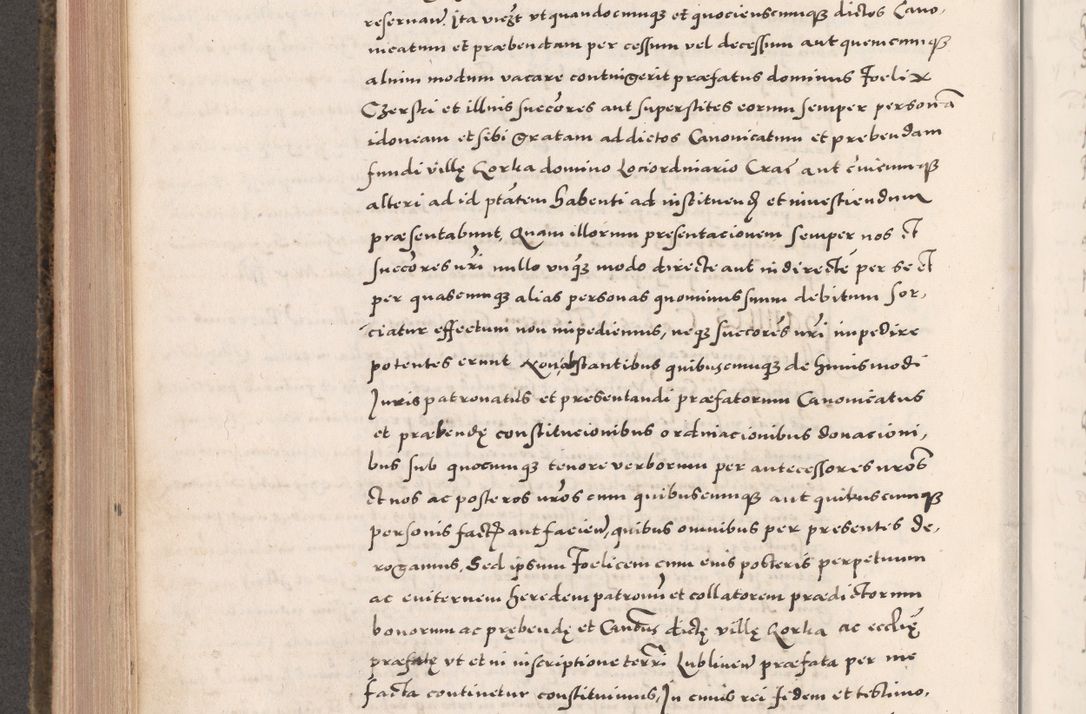 reseruan. Ita videlzt vt quandocumque et quocienscumque dictos Cano-
nicatum et præbendam per cessum vel decessum aut quemcumque
alium modum vacare contingerit præfatus dominus Foelix
Czerski et illius succores aut superstites eorum semper personam
idoneam et sibi gratam ad dictos Canonicatum et prebendam
fundi villę Zorka domino Lociordinario Crac aut cuicumque
alteri ad id ptatem habenti ad instituend et inuestiendum
præsentabunt, Quam illorum presentacionem semper nos et
succores nri nullo vnq modo directe aut indirecte per se et
per quascumque alias personas quominus suum debitum sor-
ciatur effectum non impediemus, neque succores nri impedire
potentes erunt Non obstantibus quibuscumque de huiusmodi
Iuris patronatus et presentandi præfatorum Canonicatus
et præbendę constitucionibus ordinacionibus donacioni-
bus sub quocumque tenore verborum per antecessores nros
et nos ac posteros nros cum quibuscumque aut quibuscumque
personis fact aut facien, quibus omnibus per presentes de-
rogamus, Sed ipsum Foelicem cum eius posteris perpetuum
ac euiternem heredem patronum et collatorem prædictorum
bonorum ac prębendę et Canctus dictę villę Zorka ac ecclię
præfatę vt et in inscriptione terri Lublinen præfata per me
facta continetur constituimus, In cuius rei fidem et testimo-